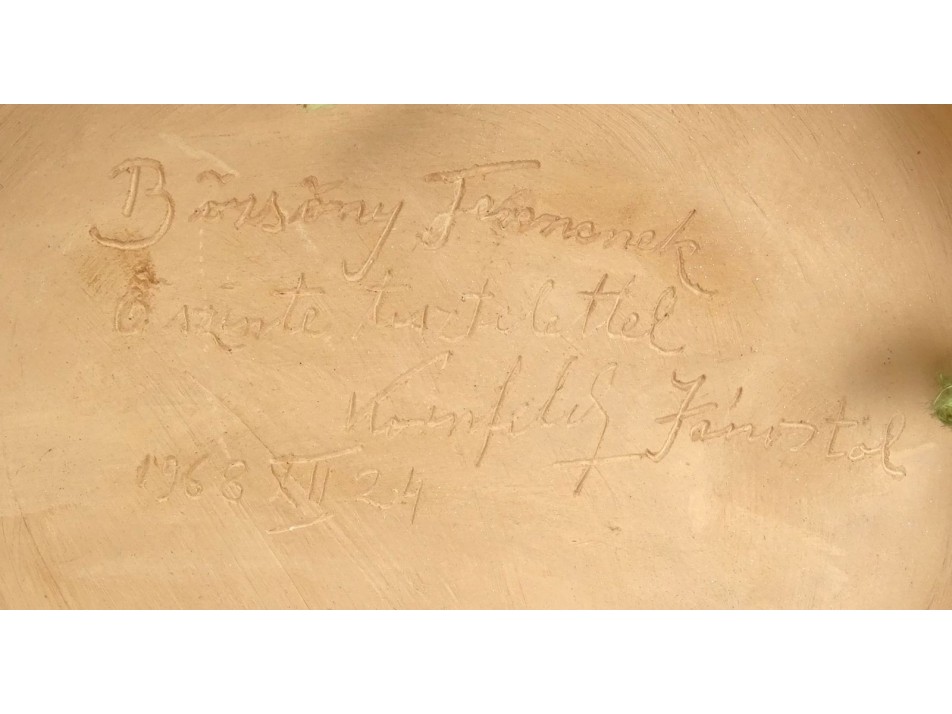 Börzsöny Ferencnek
Őszinte tisztelettel
Kornfeld Jánostól
1968 XII 24